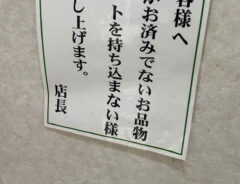 客様へ
がお済みでないお品物
トを持ち込まない様
し上げます。
店長